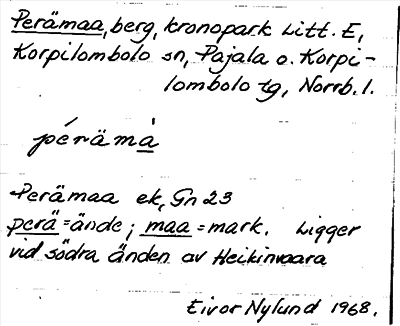 Perämaa, berg, kronopark Litt. E,
Korpilombolo sn, Pajala o. Korpi-
lombolo tg, Norrb. l.
pérämà
Perämaa ek, Gn 23
perä = ände; maa = mark. Ligger
vid södra änden av Heikinvaara
Eivor Nylund 1968.